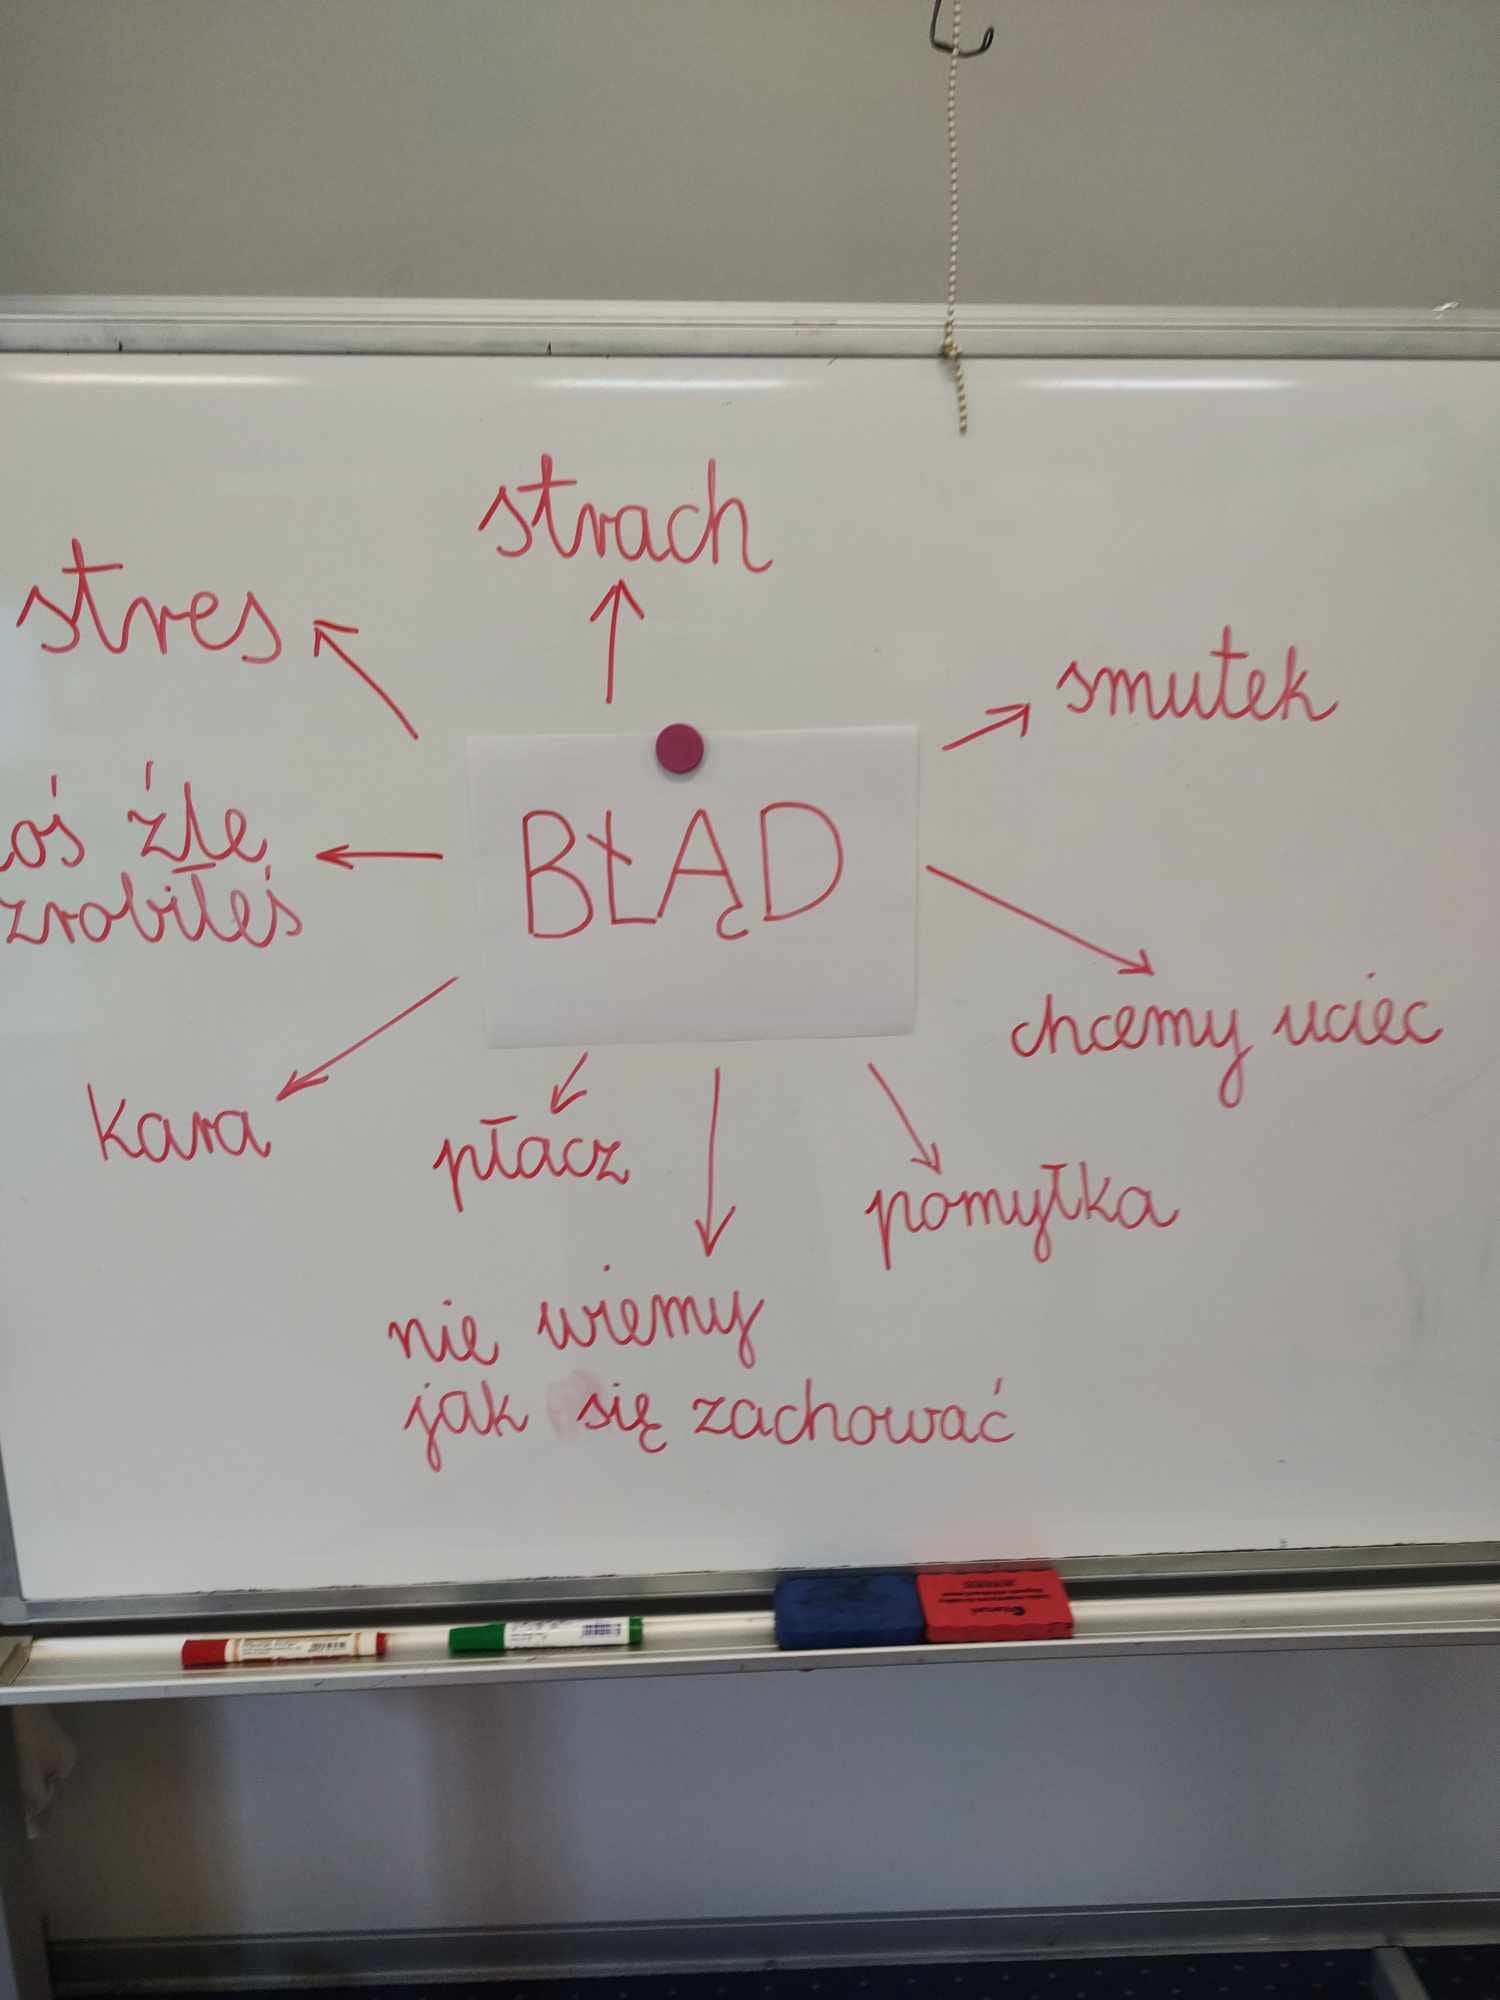 strach
stres
smutek
BŁĄD
oś źle
zrobiłeś
chcemy uciec
kara
płacz
pomyłka
nie wiemy
jak się zachować